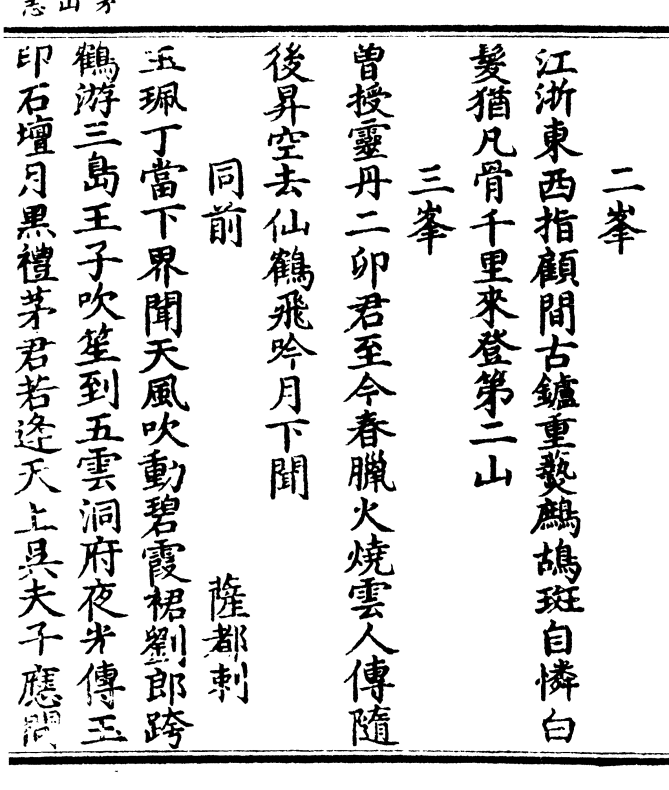 二峯
江浙東西指顧間古鑪重爇鷓鴣斑自憐白
髮猶凡骨千里來登第二山
三峯
曾授靈丹二卯君至今春臘火燒雲人傳隨
後昇空去仙鶴飛吟月下聞
同前 薩都剌
玉珮丁當下界聞天風吹動碧霞裙劉郎跨
鶴游三島王子吹笙到五雲洞府夜光傳玉
印石壇月黒禮茅君若逢天上吳夫子應問